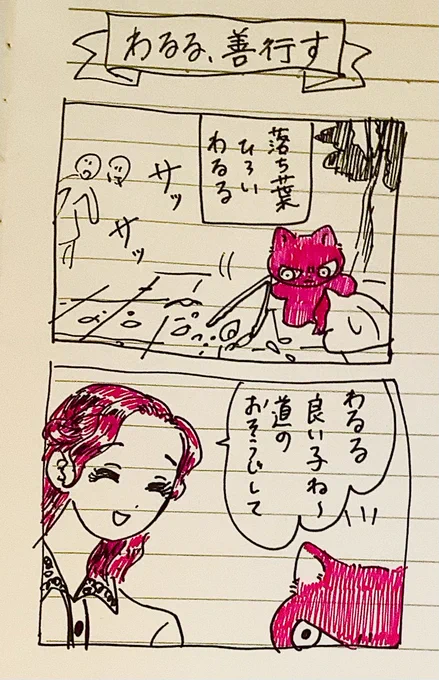 わるる、善行す
落ち葉
ひろい
わるる
サッ
サッ
わるる
良い子ね〜
道の
おそうじして